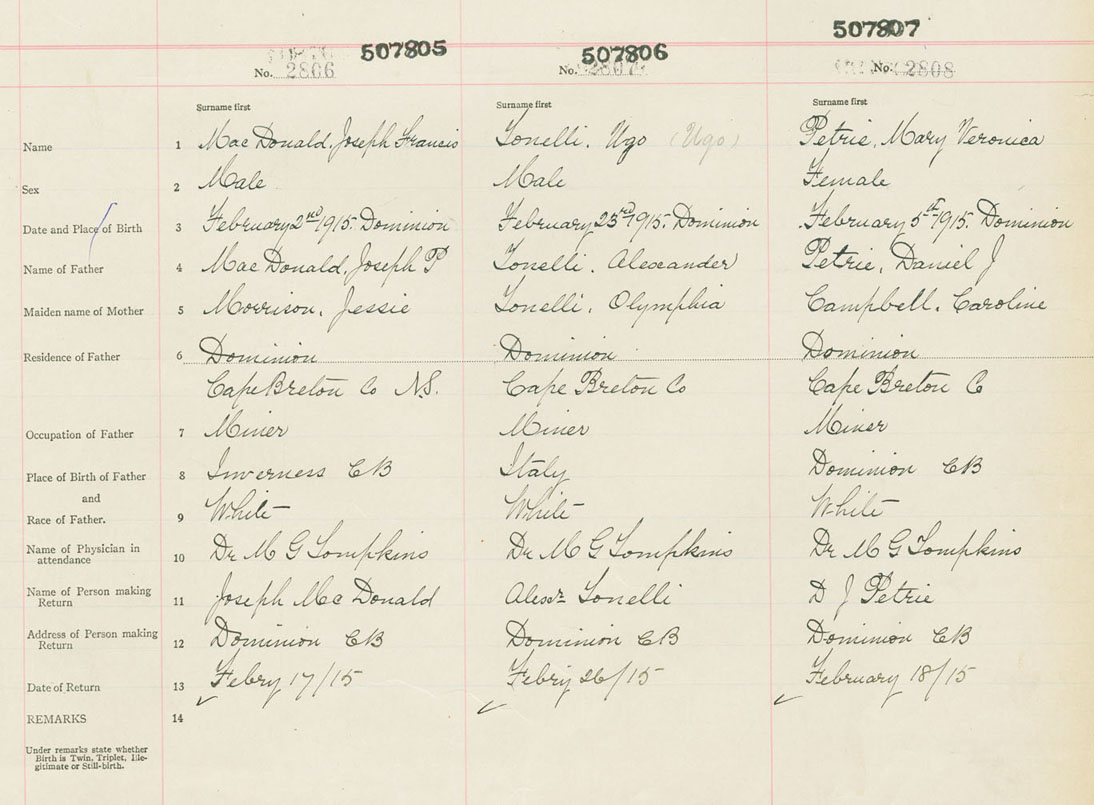 507805 507806 507807
No. 2806 No. 2807 No. 2808
Surname first Surname first Surname first
Name 1 Mac Donald, Joseph Francis Tonelli, Ugo (Ugo) Petrie, Mary Veronica
Sex 2 Male Male Female
Date and Place of Birth 3 February 2nd 1915. Dominion February 23rd 1915. Dominion February 5th 1915. Dominion
Name of Father 4 Mac Donald, Joseph P Tonelli, Alexander Petrie, Daniel J
Maiden name of Mother 5 Morrison, Jessie Tonelli, Olymphia Campbell, Caroline
Residence of Father 6 Dominion Dominion Dominion
Cape Breton Co N.S. Cape Breton Co Cape Breton Co
Occupation of Father 7 Miner Miner Miner
Place of Birth of Father 8 Inverness CB Italy Dominion CB
and
Race of Father. 9 White White White
Name of Physician in
attendance 10 Dr M G Tompkins Dr M G Tompkins Dr M G Tompkins
Name of Person making
Return 11 Joseph Mc Donald Alexr Tonelli D J Petrie
Address of Person making
Return 12 Dominion CB Dominion CB Dominion CB
Date of Return 13 Febry 17/15 Febry 26/15 February 18/15
REMARKS 14
Under remarks state whether
Birth is Twin, Triplet, Ille-
gitimate or Still-birth.